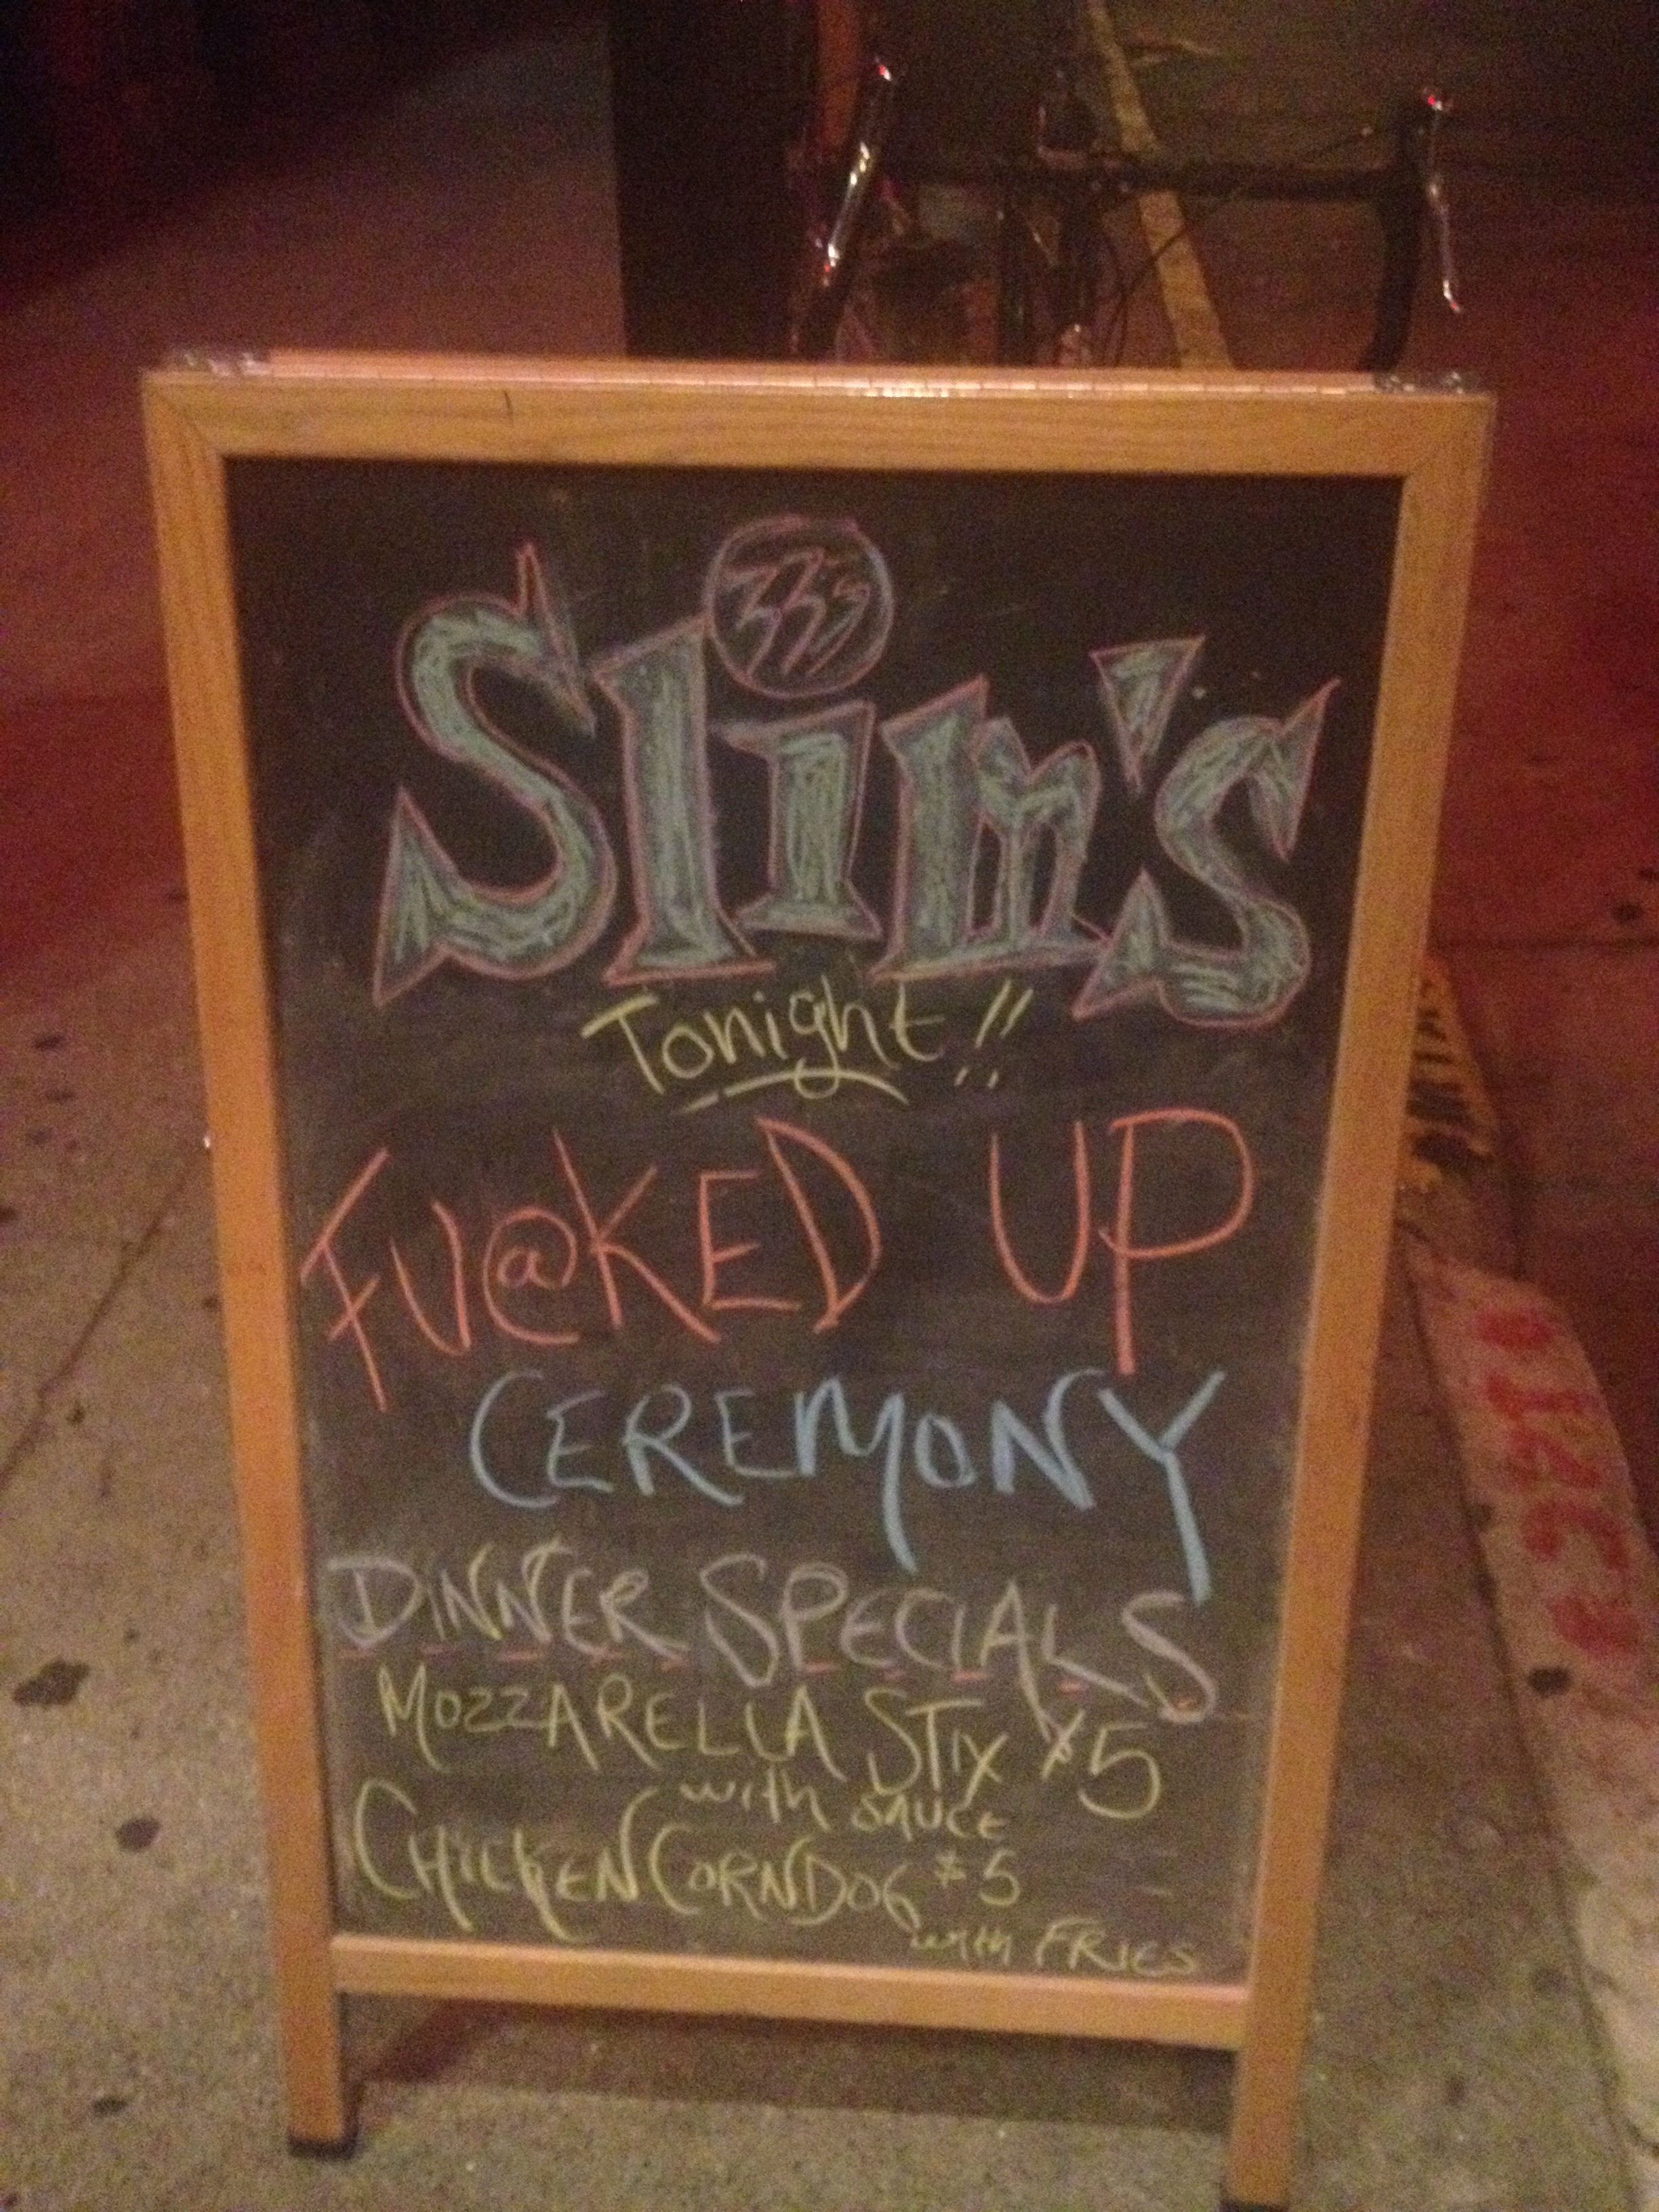 333
Slim's
Tonight!!
FU@KED UP
CEREMONY
DINNER SPECIALS
MOZZARELLA STIX $5
with SAUCE
CHICKEN CORNDOG $5
with FRIES